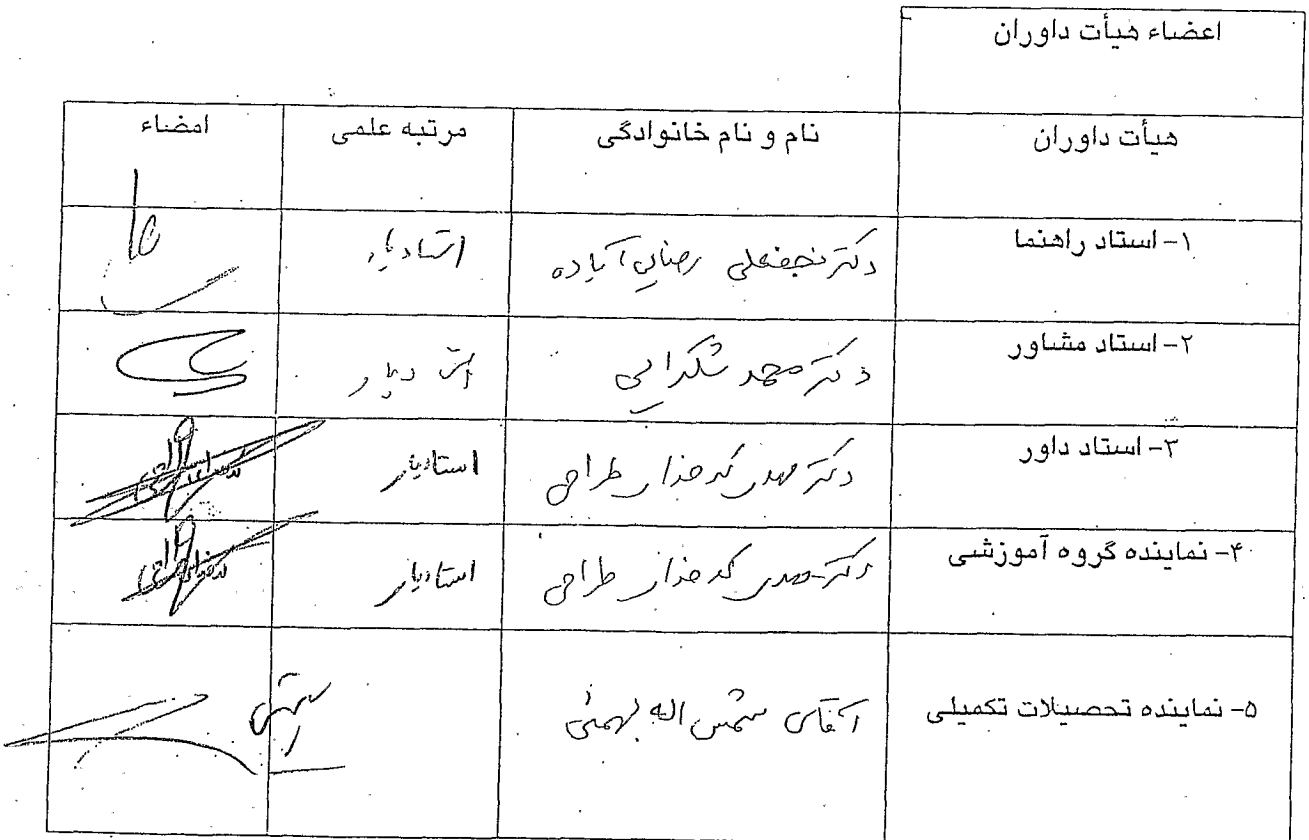 اعضاء هیأت داوران
هیأت داوران نام و نام خانوادگی مرتبه علمی امضاء
۱- استاد راهنما دکتر نجفعلی رضایی آباده استادیار
۲- استاد مشاور دکتر استادیار
۳- استاد داور دکتر مهدی کدخدای طراحی استادیار
۴- نماینده گروه آموزشی دکتر مهدی کدخدای طراحی استادیار
۵- نماینده تحصیلات تکمیلی آقای شمس اله بهمئی